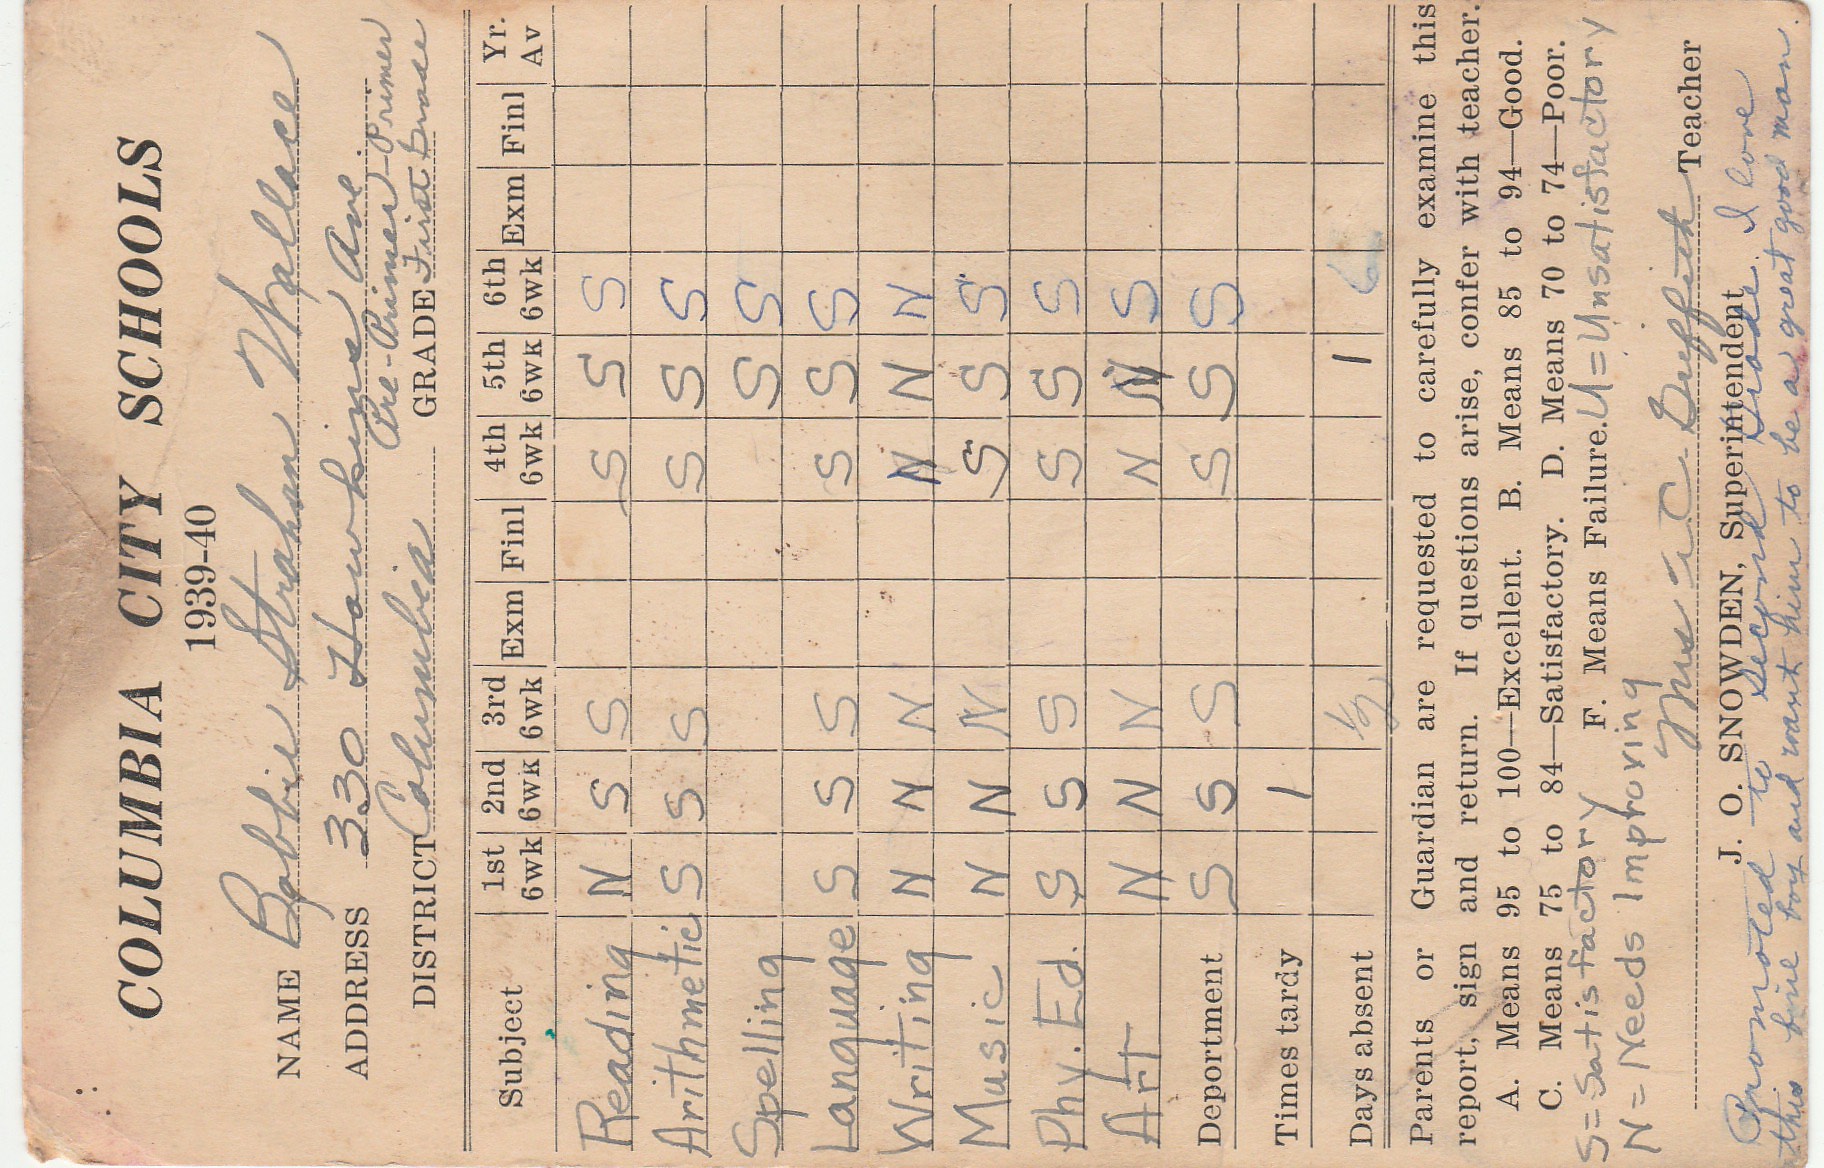 COLUMBIA CITY SCHOOLS
1939-40
NAME Bobbie Strahan Wallace
ADDRESS 330 Hawkins Ave.
(Pre-Primer)-Primer
DISTRICT Columbia GRADE First Grade
Subject 1st 6wk 2nd 6wk 3rd 6wk Exm Finl 4th 6wk 5th 6wk 6th 6wk Exm Finl Yr. Av
Reading N S S S S S
Arithmetic S S S S S S
Spelling S S
Language S S S S S S
Writing N N N N N N
Music N N N S S S
Phy. Ed. S S S S S S
Art N N N N N S
Deportment S S S S S S
Times tardy 1
Days absent 1/2 1 6
Parents or Guardian are requested to carefully examine this
report, sign and return. If questions arise, confer with teacher.
A. Means 95 to 100—Excellent. B. Means 85 to 94—Good.
C. Means 75 to 84—Satisfactory. D. Means 70 to 74—Poor.
S=Satisfactory F. Means Failure. U=Unsatisfactory
N=Needs Improving
Mrs C. Griffith Teacher
J. O. SNOWDEN, Superintendent
Promoted to Second Grade. I love
this fine boy and want him to be a great good man